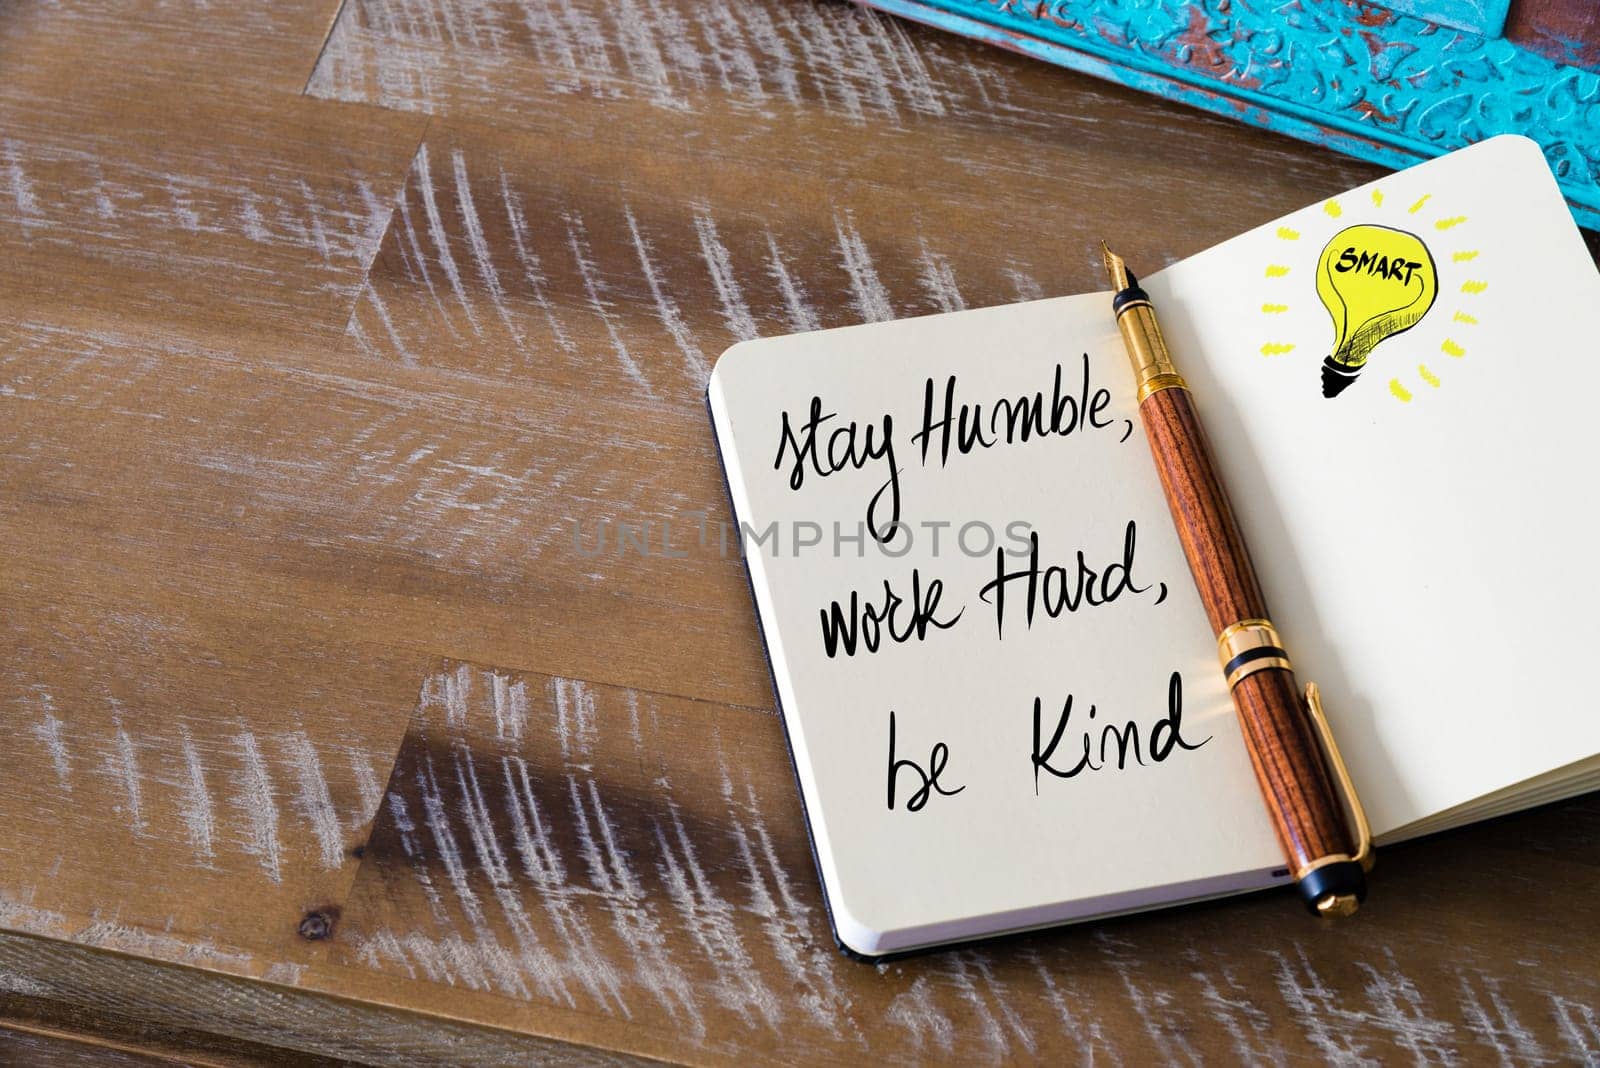 SMART
Stay Humble,
work Hard,
be Kind
UNLIMPHOTOS